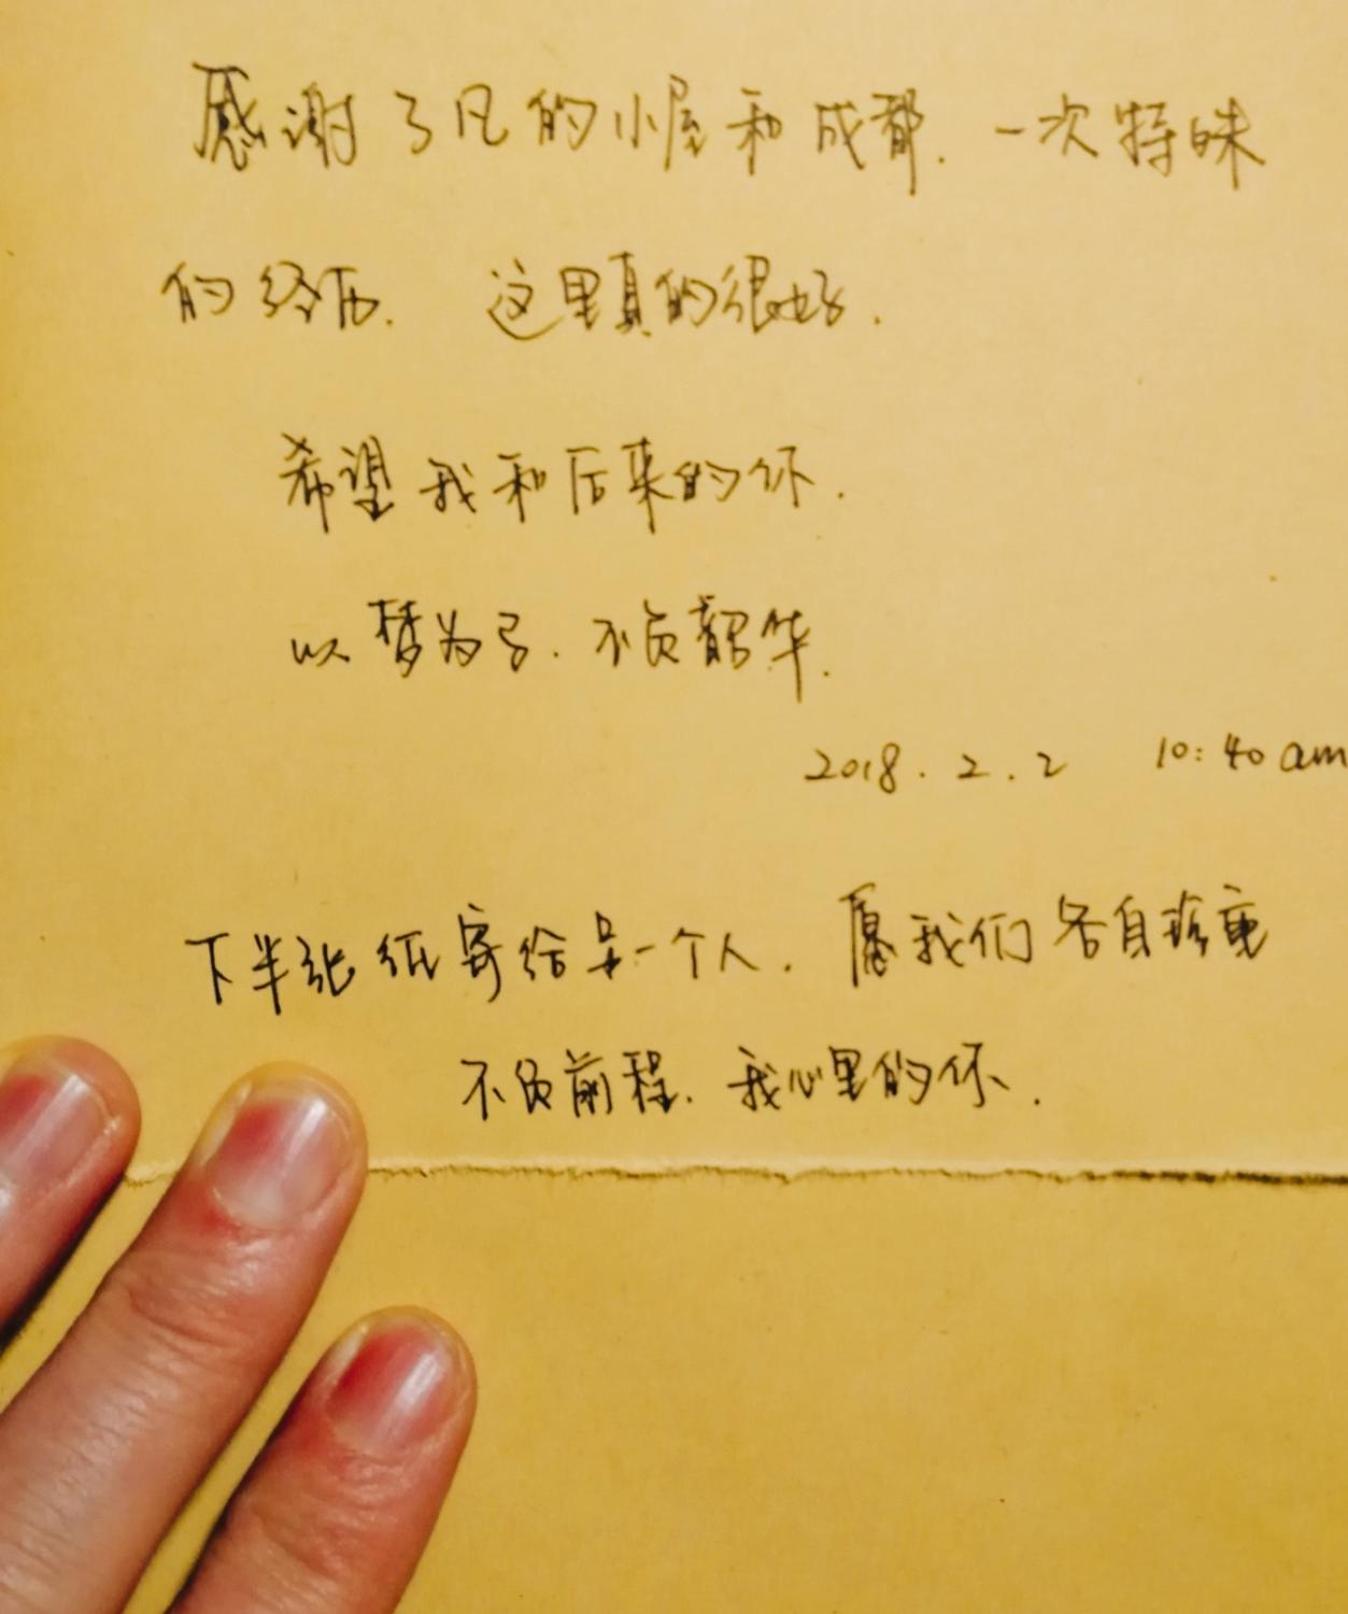 感谢了凡的小屋和成都. 一次特殊
的经历. 这里真的很好.
希望我和后来的你.
以梦为马. 不负韶华.
2018.2.2 10:40 am
下半张纸寄给另一个人. 愿我们各自珍重
不负前程. 我心里的你.